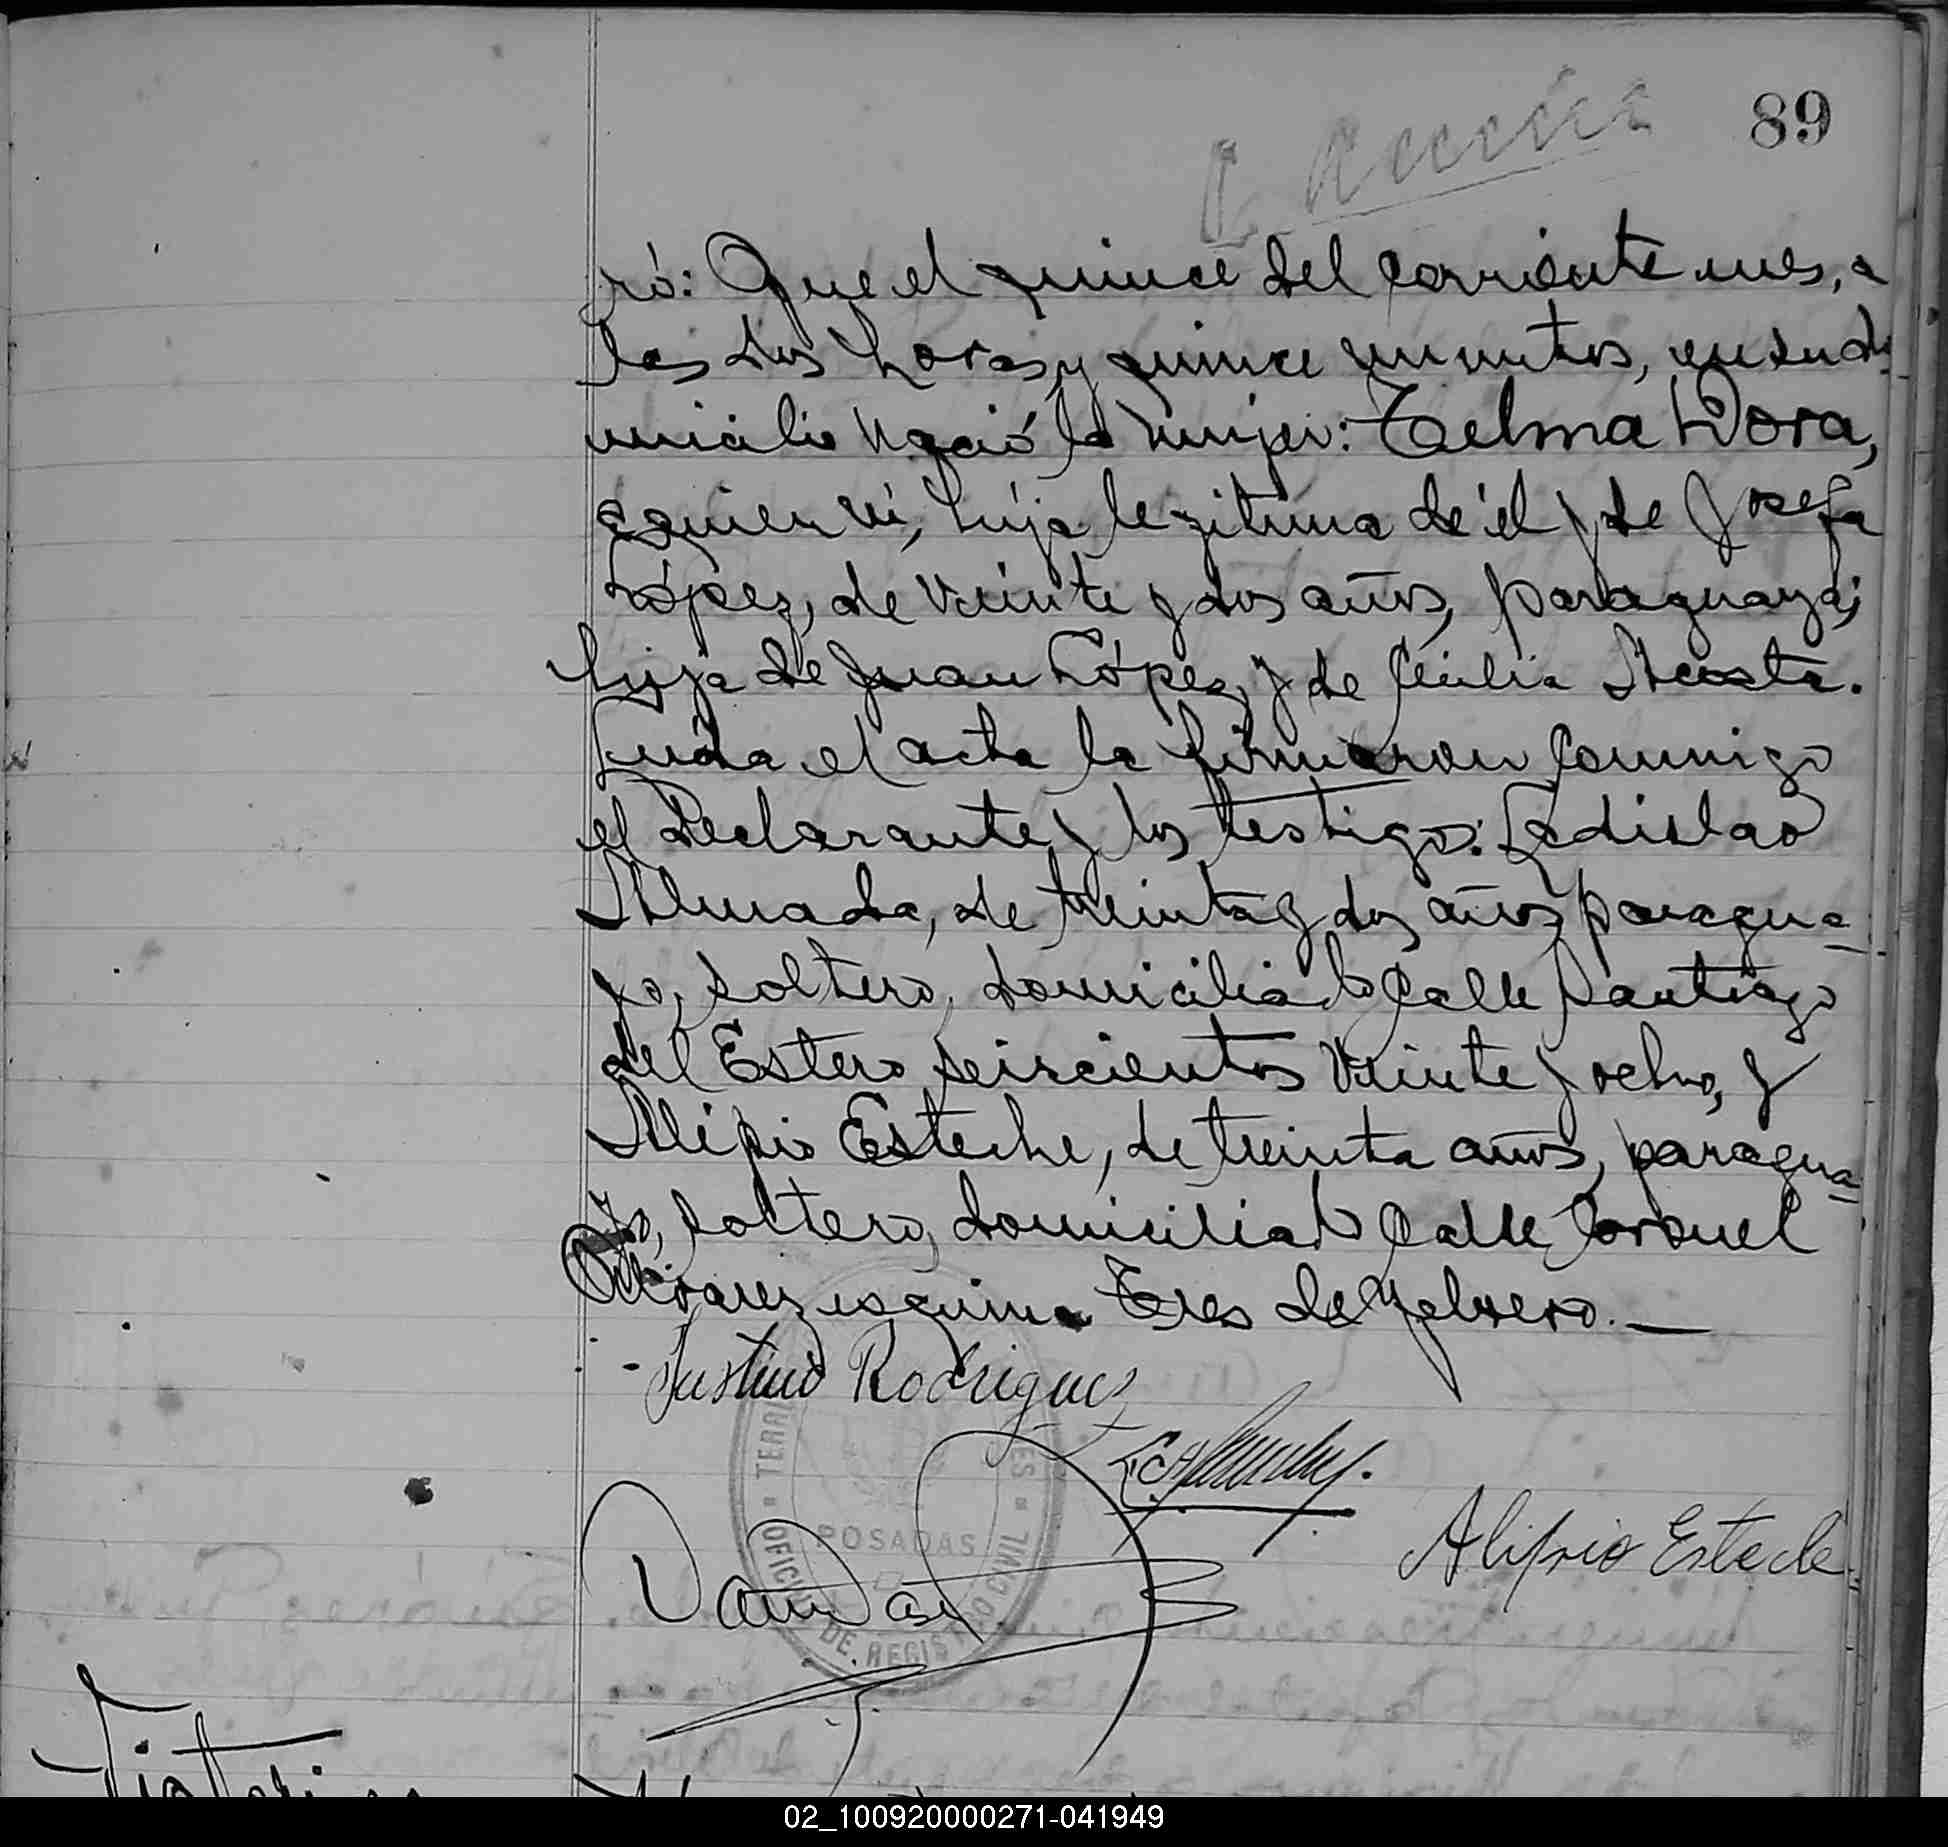 89
ró: Que el quince del corriente mes, a
las dos horas y quince minutos, en su do-
micilio nació la mujer: Telma Dora,
a quien vi, hija legitima de él y de Josefa
López, de veinte y dos años, paraguaya;
hija de Juan López, y de Cecilia Acosta.
Leida el acta la firmaron conmigo
el declarante y los testigos: Ladislao
Almada, de treinta y dos años, paragua-
yo, soltero, domiciliado calle Santiago
del Estero seiscientos veinte y ocho, y
Alipio Esteche, de treinta años, paragua-
yo, soltero, domiciliado calle Coronel
Alvarez esquina Tres de Febrero. —
Justino Rodriguez
Alipio Esteche
POSADAS
OFICINA DE REGISTRO CIVIL
02_100920000271-041949